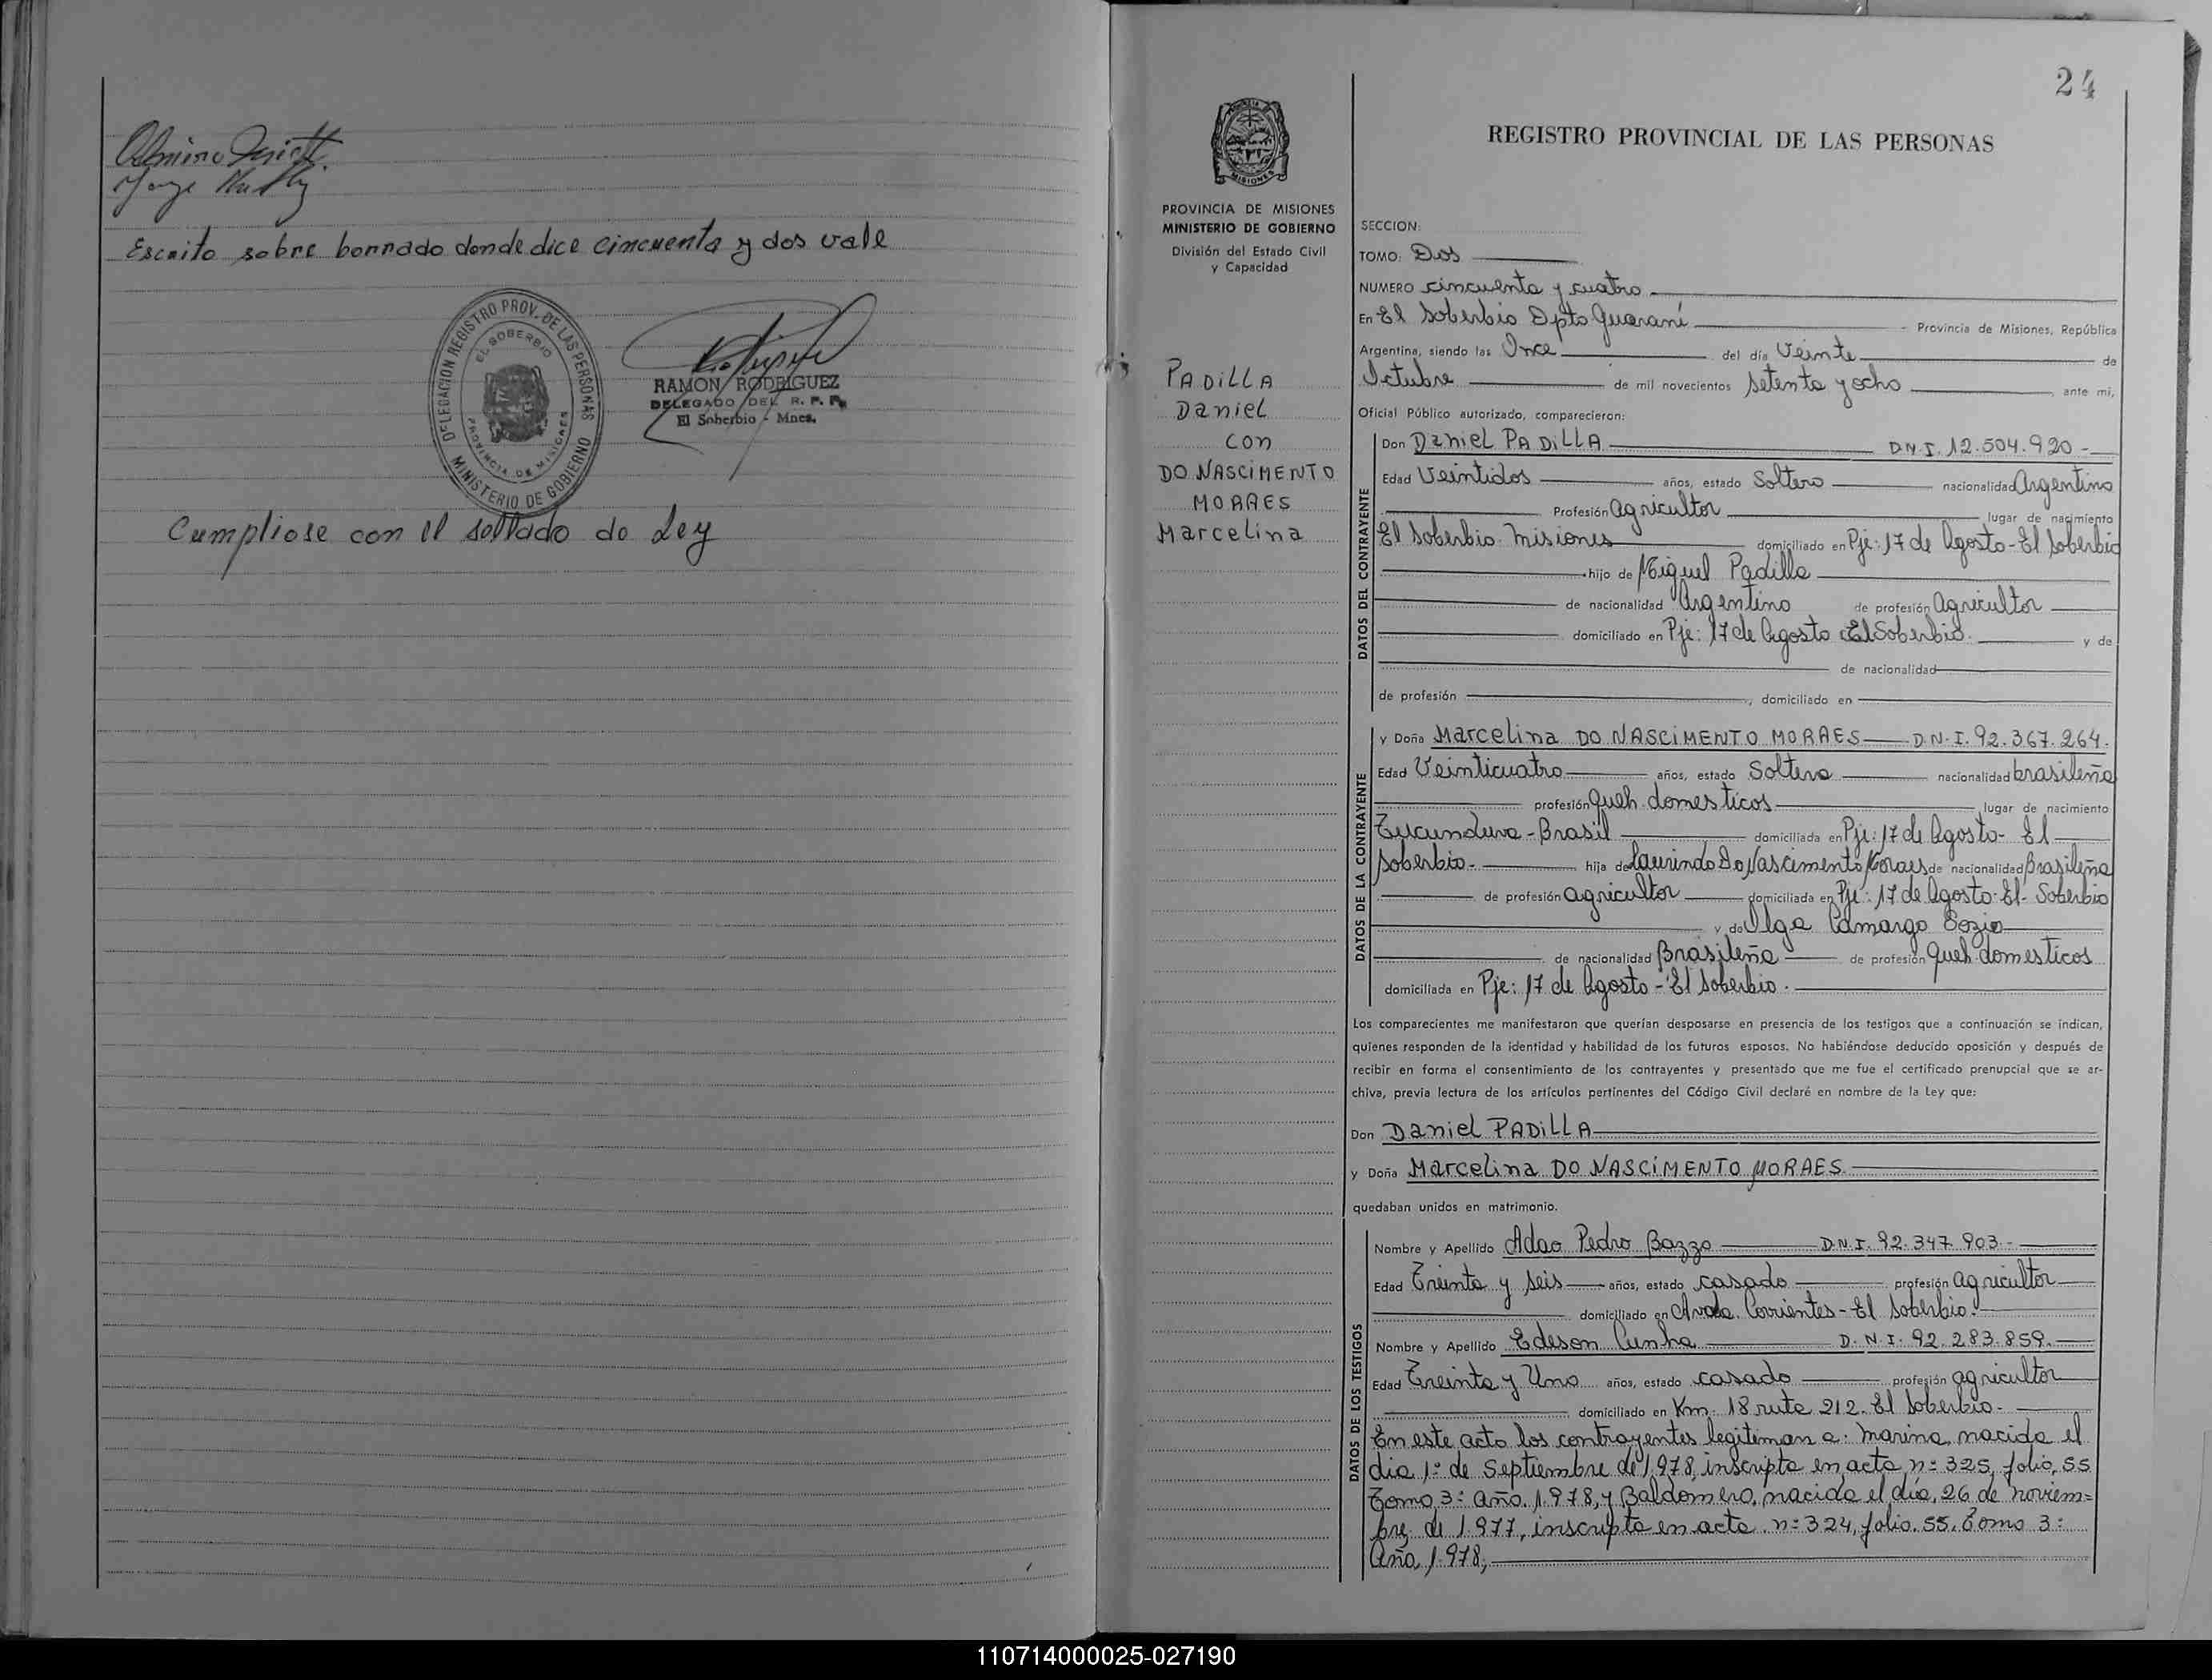 Escrito sobre borrado donde dice cincuenta y dos vale
DELEGACION REGISTRO PROV. DE LAS PERSONAS
EL SOBERBIO
PROVINCIA DE MISIONES
MINISTERIO DE GOBIERNO
RAMON RODRIGUEZ
DELEGADO DEL R. P. P.
El Soberbio - Mnes.
Cumpliose con el sellado de Ley
24
MISIONES
PROVINCIA DE MISIONES
MINISTERIO DE GOBIERNO
División del Estado Civil
y Capacidad
PADILLA
Daniel
con
DO NASCIMENTO
MORAES
Marcelina
REGISTRO PROVINCIAL DE LAS PERSONAS
SECCION:
TOMO: Dos
NUMERO cincuenta y cuatro
En El Soberbio Dpto Guaraní Provincia de Misiones, República
Argentina, siendo las Once del día Veinte de
Octubre de mil novecientos setenta y ocho, ante mi,
Oficial Público autorizado, comparecieron:
DATOS DEL CONTRAYENTE
Don Daniel PADILLA D.N.I. 12.504.920-
Edad Veintidos años, estado Soltero nacionalidad Argentino
Profesión Agricultor lugar de nacimiento
El Soberbio-Misiones domiciliado en Pje: 17 de Agosto-El Soberbio
hijo de Miguel Padilla
de nacionalidad Argentino de profesión Agricultor
domiciliado en Pje: 17 de Agosto El Soberbio. y de
de nacionalidad
de profesión , domiciliado en
DATOS DE LA CONTRAYENTE
y Doña Marcelina DO NASCIMENTO MORAES D.N.I. 92.367.264.
Edad Veinticuatro años, estado Soltera nacionalidad brasileña
profesión Queh. domesticos lugar de nacimiento
Tucunduva-Brasil domiciliada en Pje: 17 de Agosto- El
Soberbio- hija de Laurindo Do Nascimento Moraes de nacionalidad Brasileña
de profesión agricultor domiciliada en Pje: 17 de Agosto-El-Soberbio
y de Olga Camargo
de nacionalidad Brasileña de profesión Queh domesticos
domiciliada en Pje: 17 de Agosto-El Soberbio.
Los comparecientes me manifestaron que querían desposarse en presencia de los testigos que a continuación se indican,
quienes responden de la identidad y habilidad de los futuros esposos. No habiéndose deducido oposición y después de
recibir en forma el consentimiento de los contrayentes y presentado que me fue el certificado prenupcial que se ar-
chiva, previa lectura de los artículos pertinentes del Código Civil declaré en nombre de la Ley que:
Don Daniel PADILLA
y Doña Marcelina DO NASCIMENTO MORAES
quedaban unidos en matrimonio.
DATOS DE LOS TESTIGOS
Nombre y Apellido Adao Pedro Bazzo D.N.I. 92.347.903-
Edad Treinta y seis años, estado casado profesión agricultor
domiciliado en Avda. Corrientes-El Soberbio.
Nombre y Apellido Edeson Cunha D.N.I. 92.283.859.
Edad Treinta y Uno años, estado casado profesión agricultor
domiciliado en Km. 18 ruta 212. El Soberbio-
En este acto los contrayentes legitiman a: Marina, nacida el
día 1º de Septiembre de 1.978, inscripta en acta nº 325, folio, 55
Tomo, 3º Año, 1.978, y Baldomero, nacido el día, 26 de noviem=
bre de 1.977, inscripta en acta nº 324, folio, 55. Tomo 3º
Año 1.978;
110714000025-027190